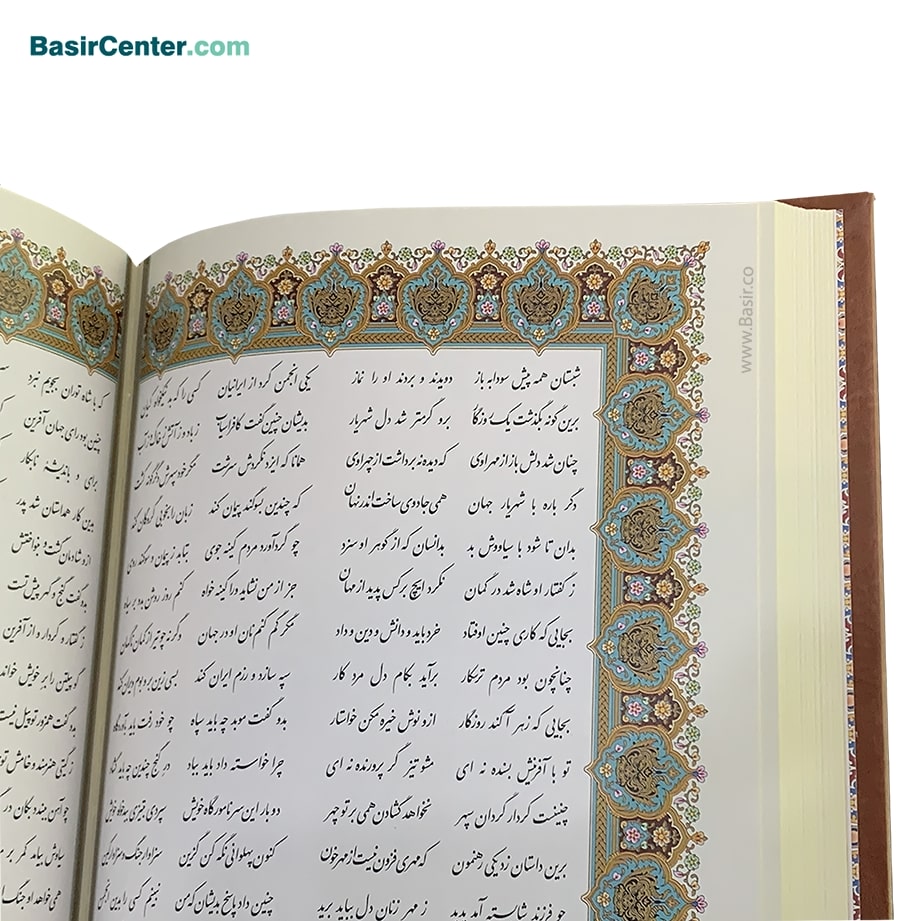 BasirCenter.com
www.Basir.co
شبستان همه پیش سودابه باز دویدند و بردند او را نماز یکی انجمن کرد از ایرانیان کسی را که بد نیکخواه کیان
برین گونه بگذشت یک روزگار برو گرمتر شد دل شهریار بدیشان چنین گفت کافراسیاب ز باد و ز آتش ز خاک و ز آب
چنان شد دلش باز از مهر اوی که دیده نه برداشت از چهر اوی همانا که ایزد نکردش سرشت مگر خود سپهرش دگرگونه کشت
دگر باره با شهریار جهان همی جادوی ساخت اندر نهان که چندین بسوگند پیمان کند زبان را بخوبی گروگان کند
بدان تا شود با سیاووش بد بدانسان که از گوهر او سزد چو گرد آورد مردم کینه جوی بتابد ز پیمان و سوگند روی
ز گفتار او شاه شد در گمان نکرد ایچ بر کس پدید از مهان جز از من نشاید ورا کینه خواه کنم روز روشن بدو بر سیاه
بجایی که کاری چنین اوفتاد خرد باید و دانش و دین و داد مگر گم کنم نام او در جهان وگرنه چو تیر از کمان ناگهان
چنانچون بود مردم ترسکار برآید بکام دل مرد کار سپه سازد و رزم ایران کند بسی زین بر و بوم ویران کند
بجایی که زهر آکند روزگار ازو نوش خیره مکن خواستار بدو گفت موبد چه باید سپاه چو خود رفت باید بآوردگاه
تو با آفرینش بسنده نه ای مشو تیز گر پرورنده نه ای چرا خواسته داد باید بباد در گنج چندین چه باید گشاد
چنینست کردار گردان سپهر نخواهد گشادن همی بر تو چهر دو بار این سر نامور گاه خویش سپردی بتیزی ببدخواه خویش
برین داستان زد یکی رهنمون که مهری فزون نیست از مهر خون کنون پهلوانی نگه کن گزین سزاوار جنگ و سزاوار کین
چو فرزند شایسته آمد پدید ز مهر زنان دل بباید برید چنین داد پاسخ بدیشان که من نبینم کسی را بدین انجمن
که با شاه توران بجوید نبرد
چنین بود رای جهان آفرین
برای و باندیشه نابکار
بدین کار همداستان شد پدر
ازو شادمان گشت و بنواختش
بدو گفت گنج و گهر پیش تست
ز گفتار و کردار و از آفرین
گو پیلتن را بر خویش خواند
بدو گفت همزور تو پیل نیست
ز گیتی هنرمند و خامش توی
چو آهن ببندد بکان در
سیاوش بیامد کمر بر
همی خواهد او جنگ